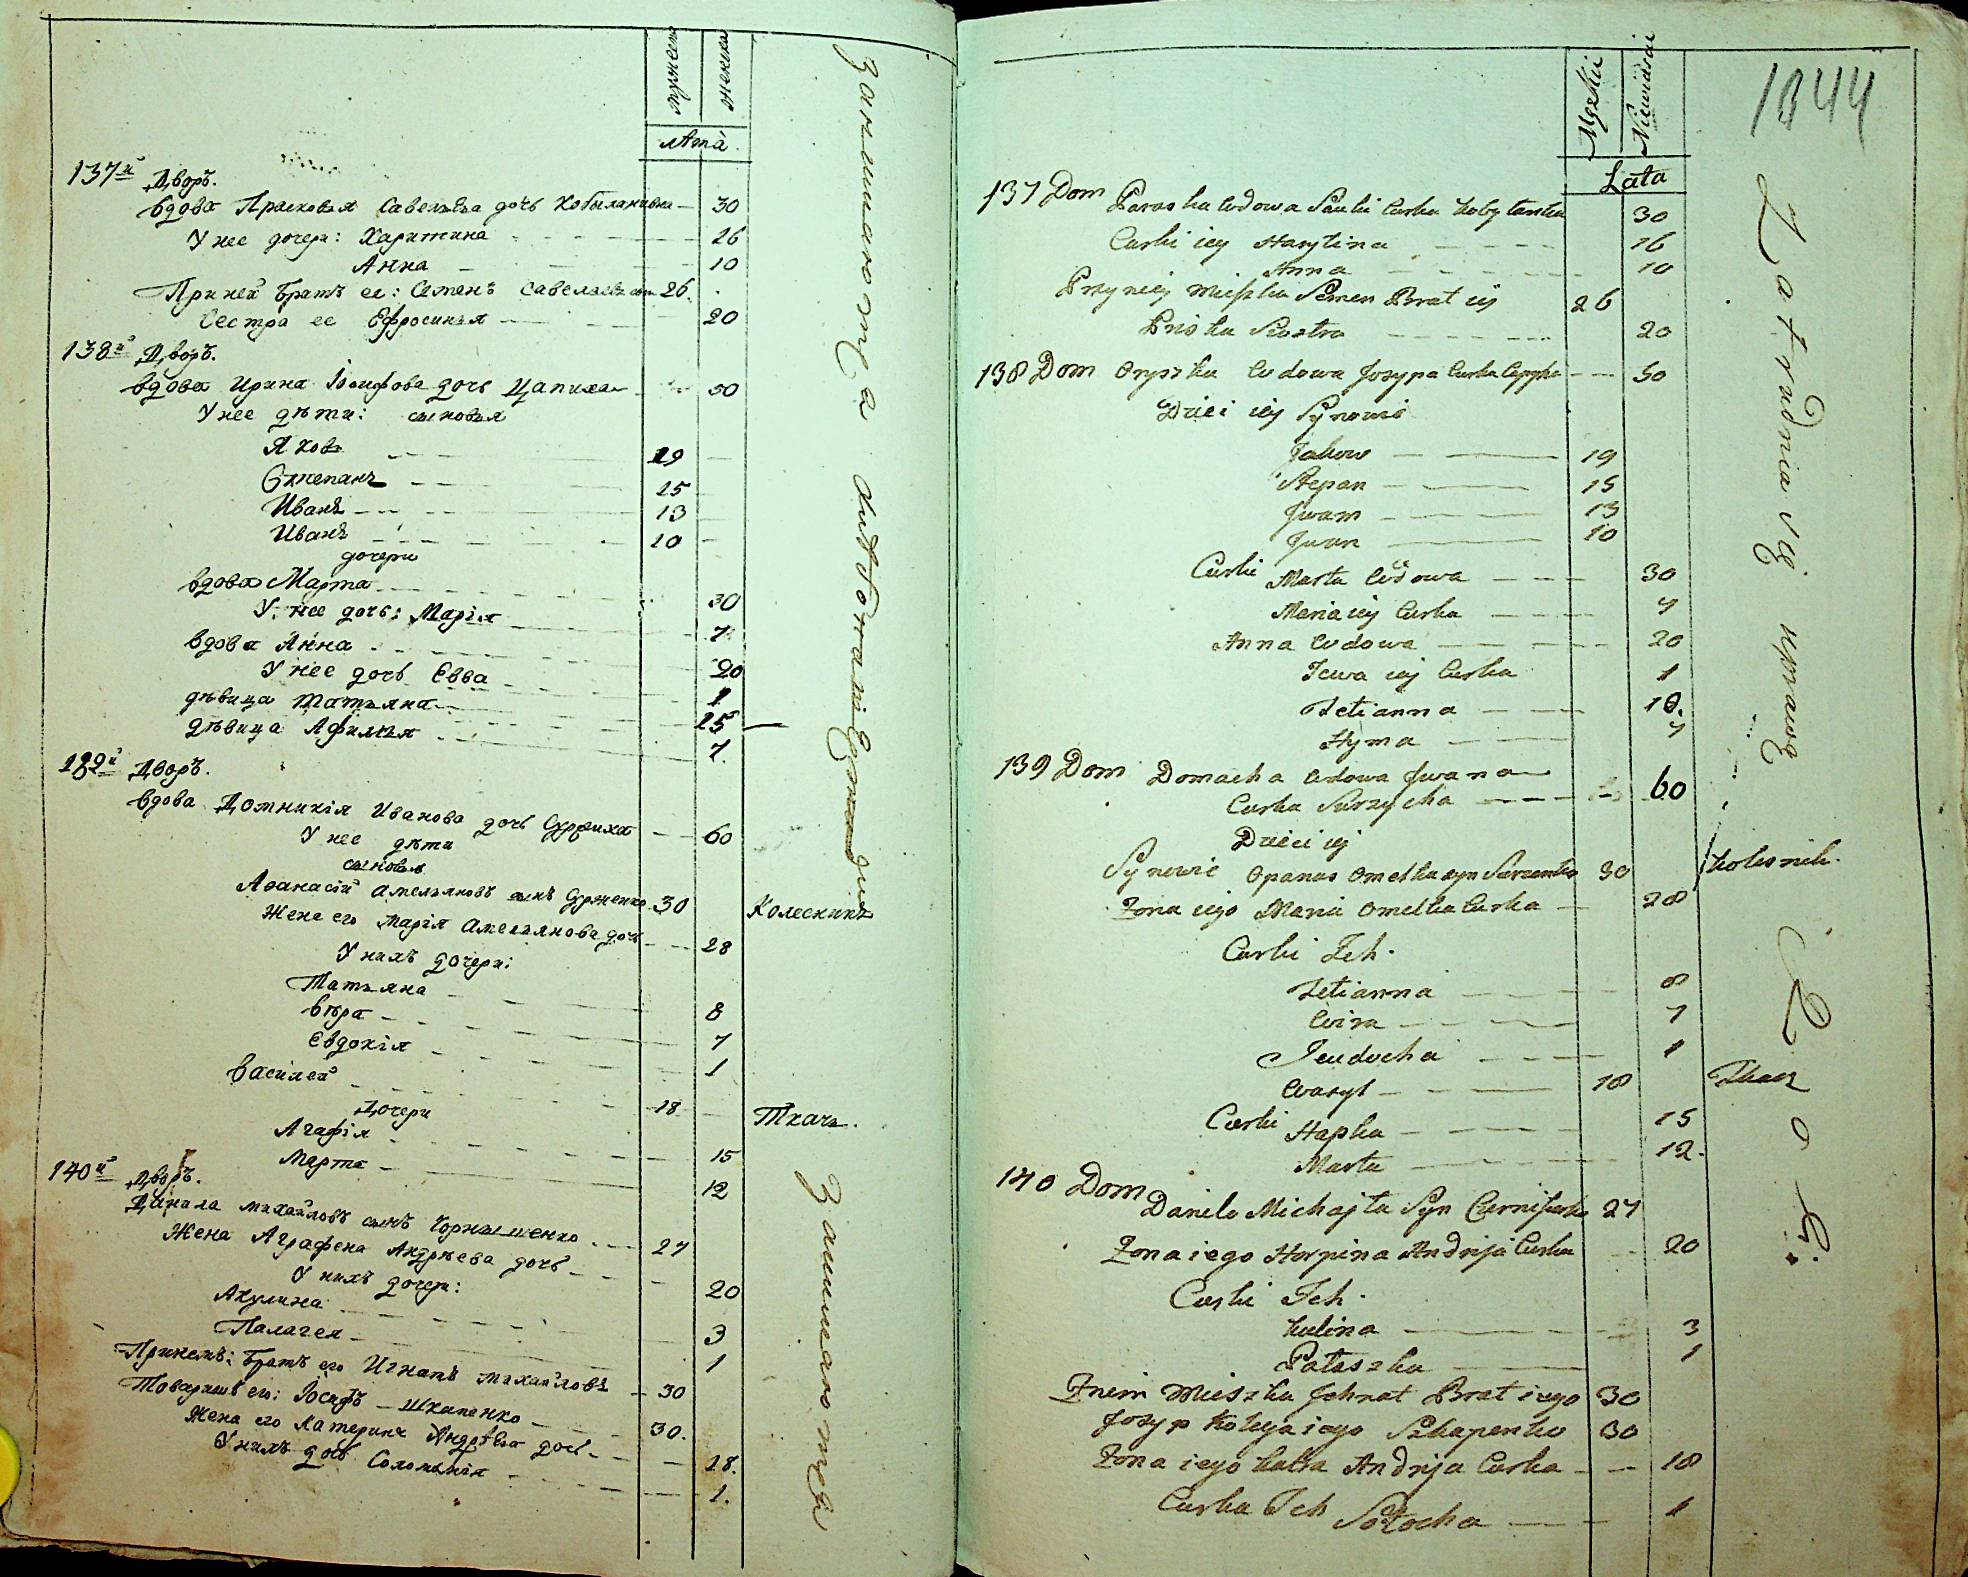 мужеска
женска
лѣта
137й Дворъ.
вдова Прасковья Савельева дочь Кобылянивна 30
У нее дочери: Харитина 26
Анна 10
При ней братъ ее: Семенъ Савельевъ сынъ 26.
Сестра ее Ефросинья 20
138й Дворъ.
вдова Ирина Іосифова дочь Цапиха 50
У нее дѣти: сыновья
Яковъ 19
Степанъ 15
Иванъ 13
Иванъ 10
дочери
вдова Марта 30
У нее дочь: Марія 7
вдова Анна 20
У нее дочь Евва 1
дѣвица Татьяна 15
дѣвица Афимья 7.
139й Дворъ.
вдова Домникія Иванова дочь Суржиха 60
У нее дѣти
сыновья
Афанасій Амельяновъ сынъ Сурженко 30 Колесникъ
Жена его Марія Амельянова дочь 28
У нихъ дочери:
Татьяна 8
Вѣра 7
Евдокія 1
Василей 18 Ткачъ.
Дочери
Агафія 15
Марта 12
140й Дворъ.
Данила Михайловъ сынъ Чорнышенко 27
Жена Аграфена Андрѣева дочь 20
У нихъ дочери:
Акулина 3
Палагея 1
При немъ: братъ его Игнатъ Михайловъ 30
Товаришъ его: Іосифъ Шкапенко 30.
Жена его Катерина Андрѣева дочь 18.
У нихъ дочь Соломѣнія 1.
Занимаются хлѣбопашествомъ
Занимаются
1844
Męzkii
Niewieścii
Lata
137 Dom Paraska wdowa Sawki Curka Kobylanka 30
Curki iey Harytina 16
Anna 10
Przy niey mieszka Semen Brat iey 26
Priska Siostra 20
138 Dom Oryszka wdowa Josypa Curka Capycha 50
Dzieci iey Synowie
Jakow 19
Stepan 15
Jwan 13
Jwan 10
Curki Marta wdowa 30
Maria iey Curka 7
Anna wdowa 20
Jewa iey Curka 1
Tetianna 10.
Hyma 7
139 Dom Domacha wdowa Jwana 60
Curka Surzycha
Dzieci iey
Synowie Opanas Omelka syn Surzenko 30 Kolesnik.
Żona iego Maria Omelka Curka 28
Curki Jch.
Tetianna 8
Wira 7
Jeudocha 1
Wasyl 18 Tkacz
Curki Hapka 15
Marta 12.
140 Dom
Danilo Michajla Syn Czerniszenko 27
Żona iego Horpina Andrija Curka 20
Curki Jch.
Kulina 3
Palaszka 1
Z nim Mieszka Jehnat Brat iego 30
Josyp Kolega iego Szkapenko 30
Żona iego Katra Andrija Curka 18
Curka Jch Sołocha 1
Zatrudnia się uprawą Roli.